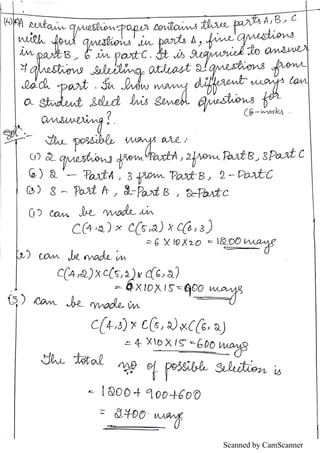 (4)(A) A certain question paper contains three parts A, B, C
with four questions in parts A, five questions
in part B, 6 in part C. It is required to answer
7 questions selecting atleast 2 questions from
each part. In how many different ways can
a student select his seven questions for
answering?.
(5-marks
Sol:-
The possible ways are:
(1) 2 questions from PartA, 2 from Part B, 3 Part C
(2) 2 — PartA, 3 from Part B, 2 - PartC
(3) 3 - Part A, 2-Part B, 2-PartC
(1) can be made in
C(4,2) x C(5,2) x C(6,3)
= 6 X 10 X 20 = 1200 ways
(2) can be made in
C(4,2) X C(5,2) x C(6,2)
= 6 X 10 X 15 = 900 ways
(3) can be made in
C(4,3) x C(5,2) x C(6,2)
= 4 X 10 X 15 = 600 ways
The total no of possible selection is
= 1200 + 900 + 600
= 2700 ways
Scanned by CamScanner